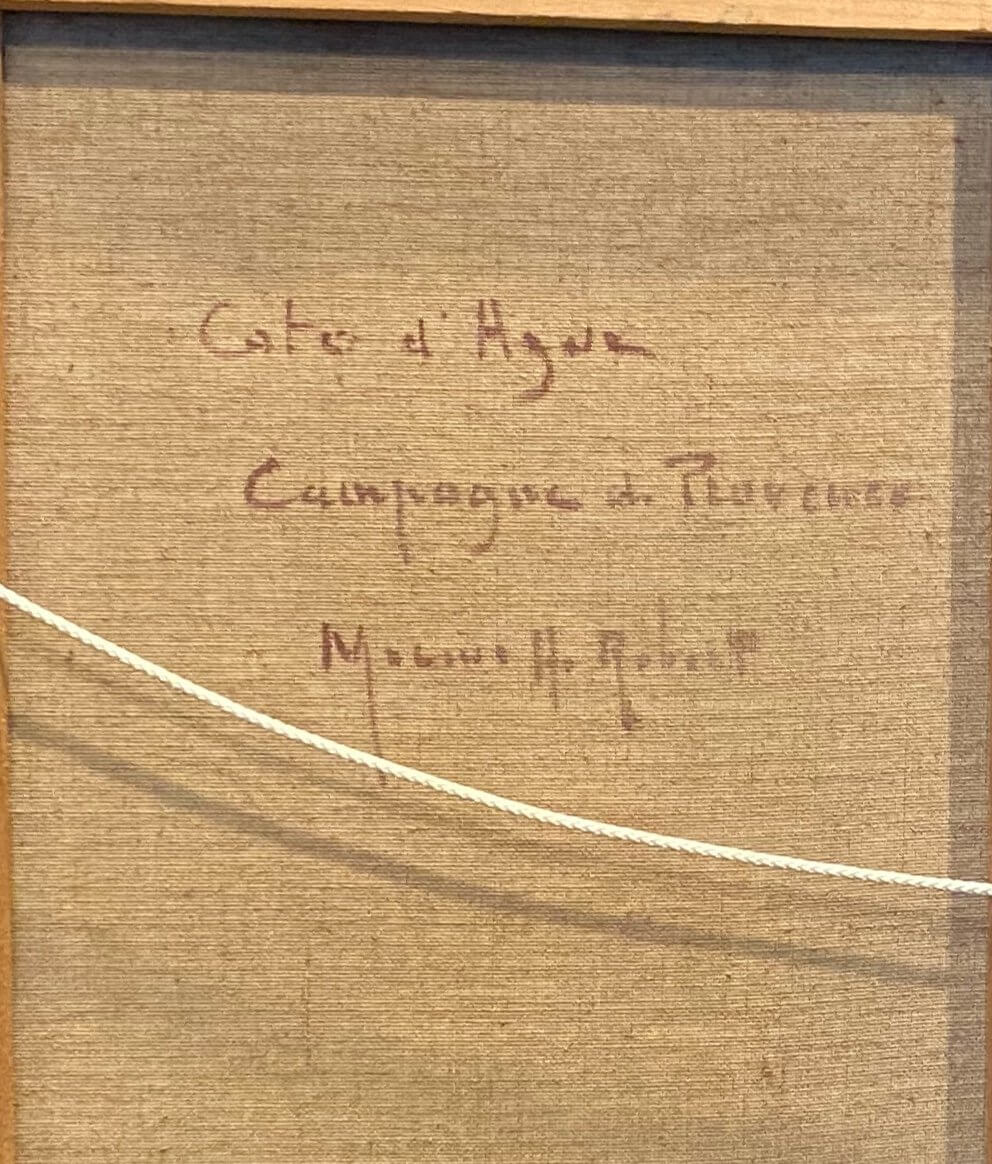 Cote d'Azur
Campagne de Provence
H. Robert